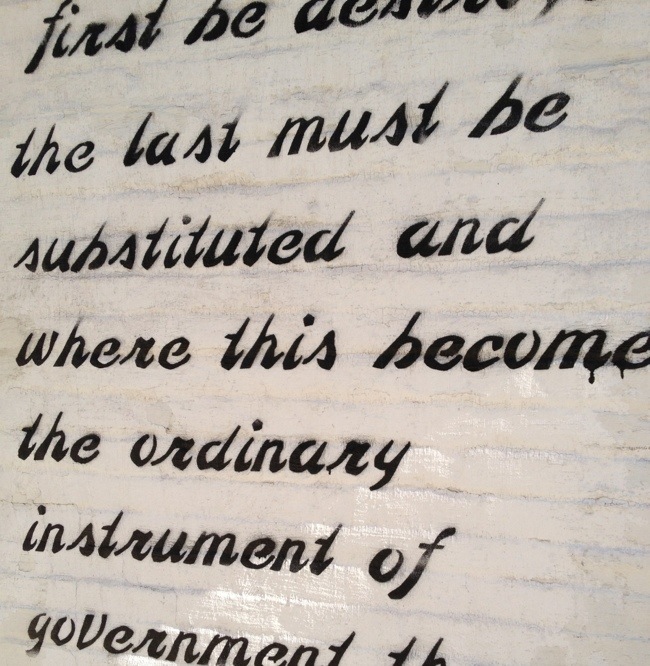 first be
the last must be
substituted and
where this become
the ordinary
instrument of
government th